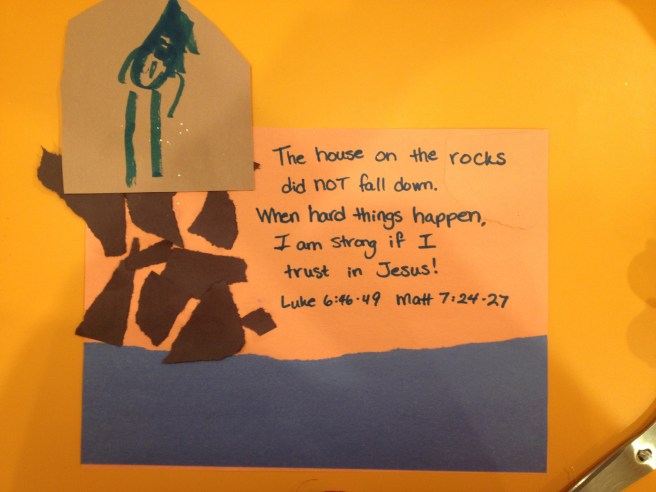 The house on the rocks
did NOT fall down.
When hard things happen,
I am strong if I
trust in Jesus!
Luke 6:46-49 Matt 7:24-27